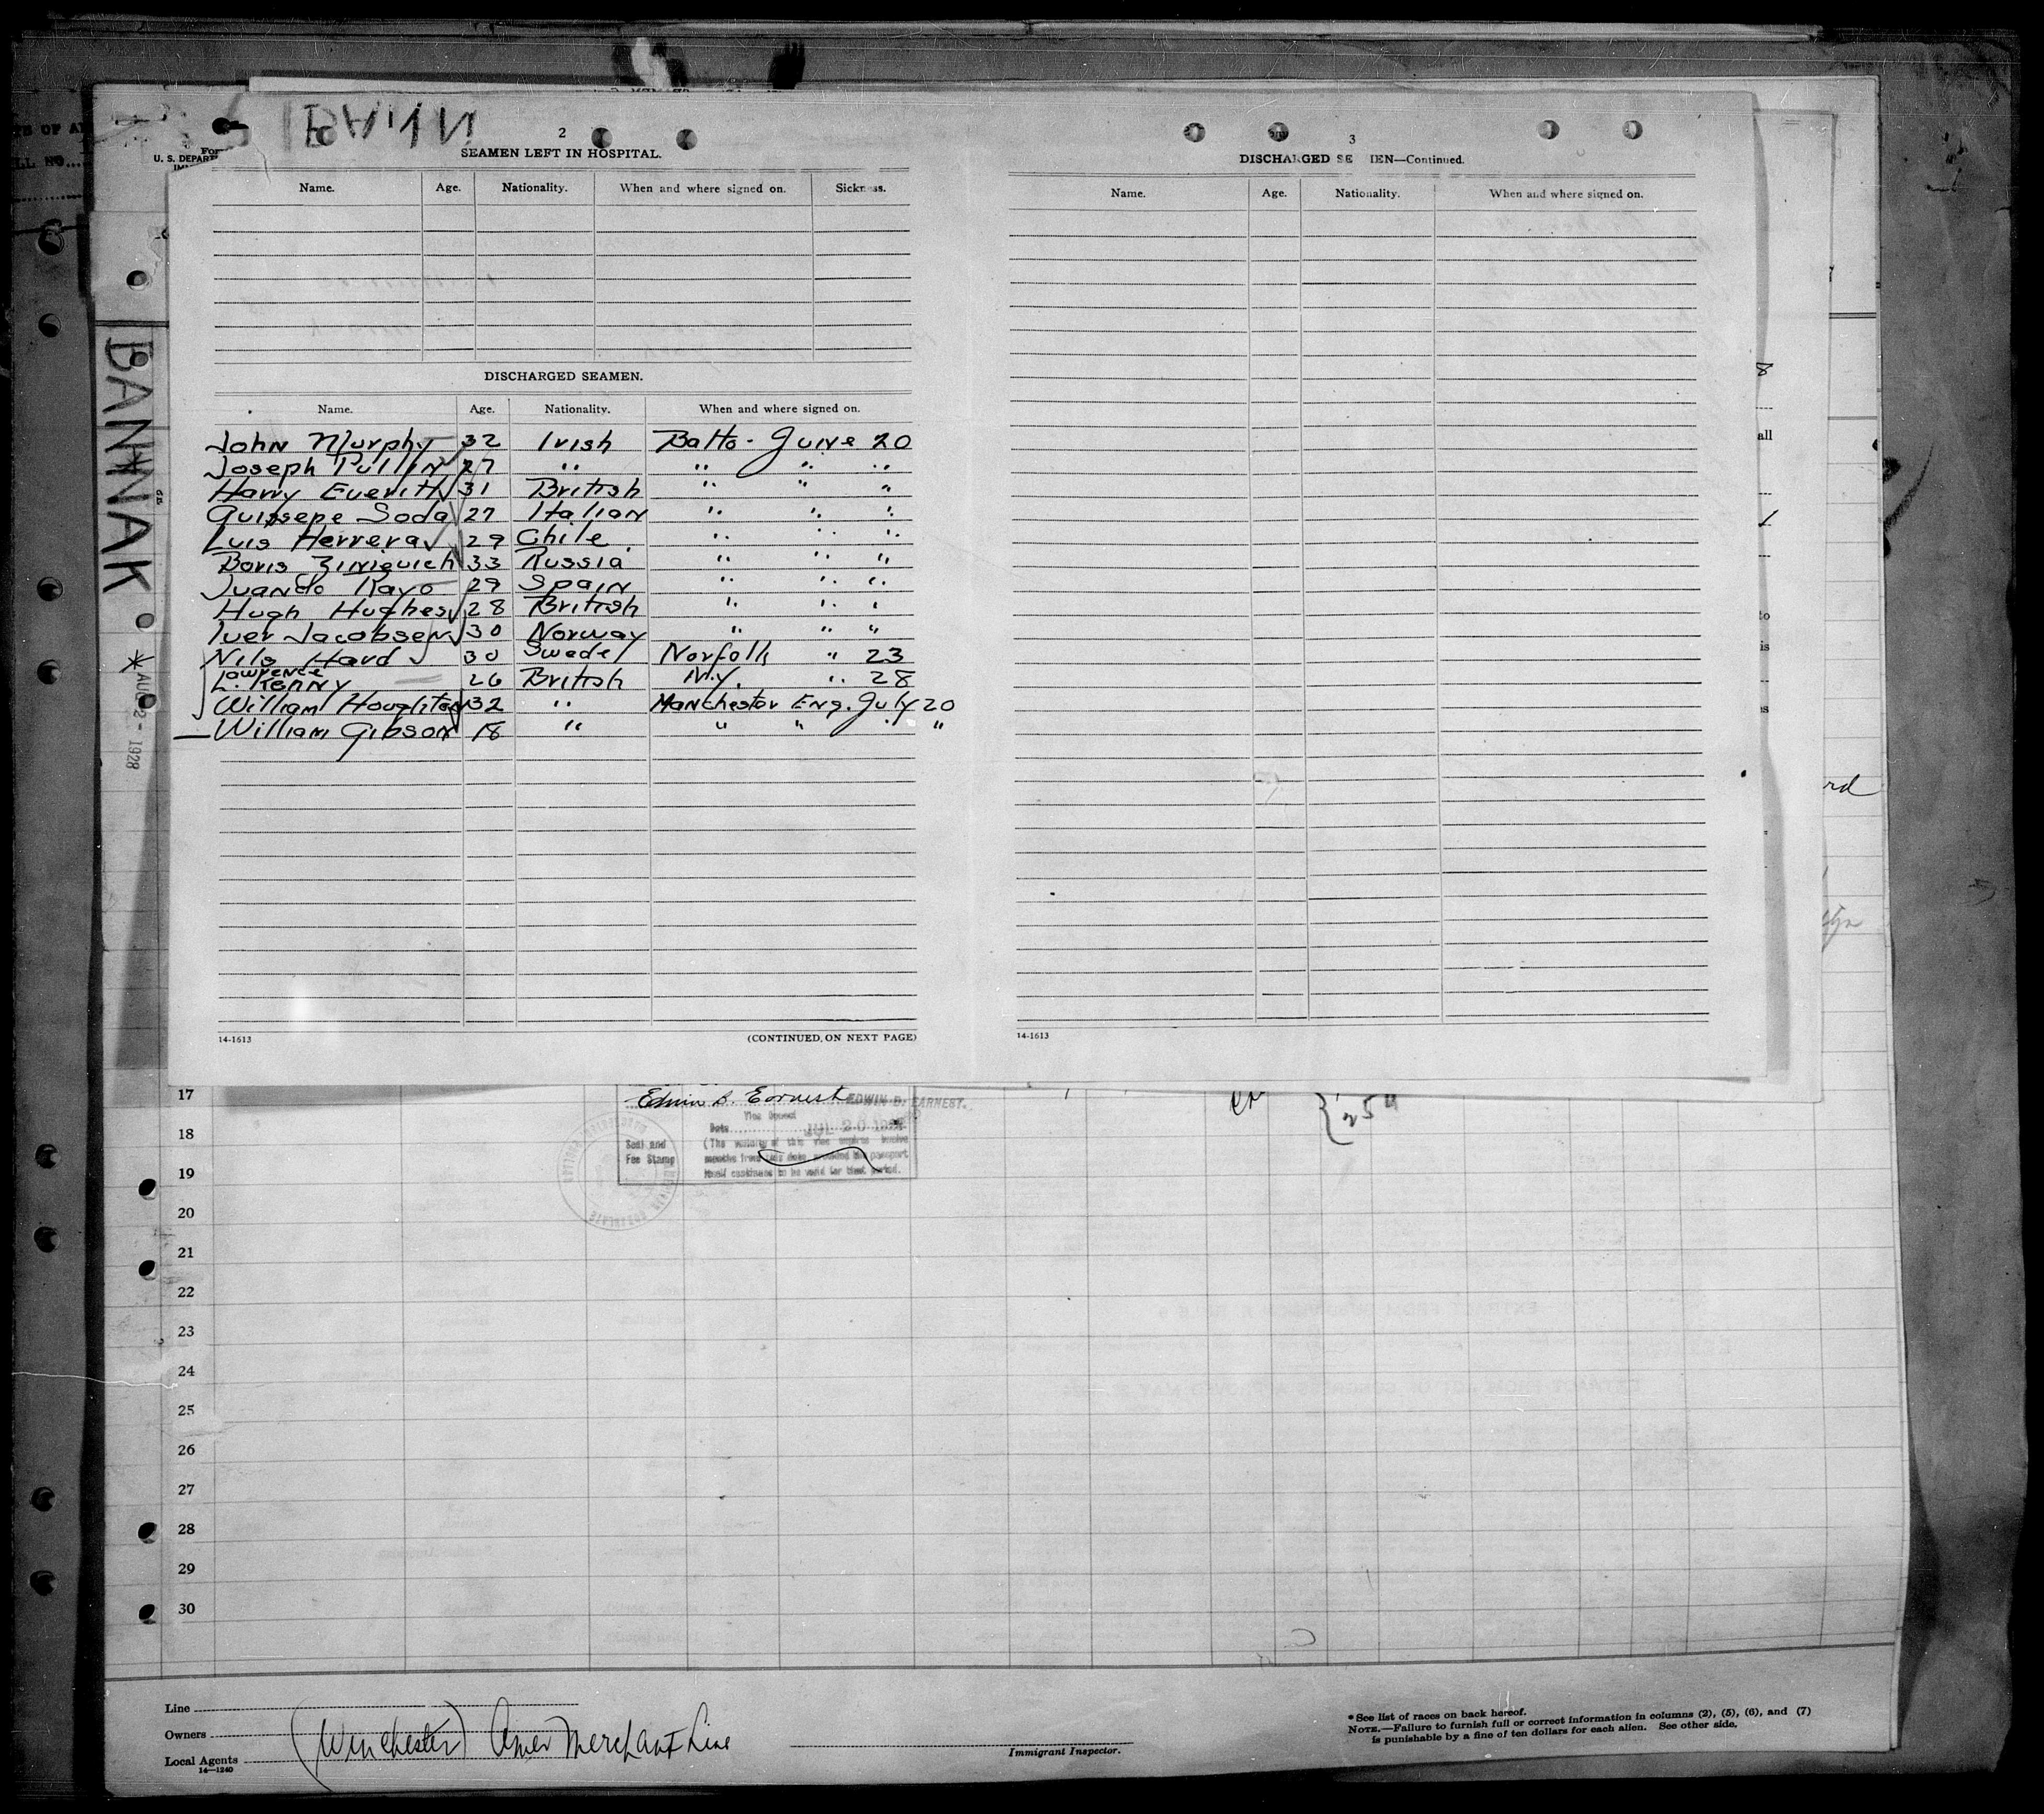 BANN
2
SEAMEN LEFT IN HOSPITAL.
Name. Age. Nationality. When and where signed on. Sickness.
DISCHARGED SEAMEN.
Name. Age. Nationality. When and where signed on.
John Murphy 32 Irish Balto. June 20
Joseph Pullin 27 " " " "
Harry Everitt 31 British " " "
Guissepe Soda 27 Italian " " "
Luis Herrera 29 Chile " " "
Boris 33 Russia " " "
Juando Rayo 29 Spain " " "
Hugh Hughes 28 British " " "
Iver Jacobsen 30 Norway " " "
Nils Hard 30 Swede Norfolk " 23
Lawrence
L. Kenny 26 British N.Y. " 28
William 32 " Manchester Eng. July 20
William Gibson 18 " " " " "
14-1613 (CONTINUED ON NEXT PAGE)
3
DISCHARGED SE IEN—Continued.
Name. Age. Nationality. When and where signed on.
14-1613
For
U. S. DEPART
BANNAK
AUG 2 - 1928
8
all
to
is
rd
17
Edwin B. Earnest EDWIN B. EARNEST.
Vice Consul
Date JUL 20 1928
Seal and
Fee Stamp
(The validity of this visa expires twelve
months from this date provided the passport
itself continues to be valid for that period.
"25"
18
19
20
21
22
23
24
25
26
27
28
29
30
Line
Owners
Local Agents
(Winchester) Amer Merchant Line
14—1240
Immigrant Inspector.
* See list of races on back hereof.
NOTE.—Failure to furnish full or correct information in columns (2), (5), (6), and (7)
is punishable by a fine of ten dollars for each alien. See other side.